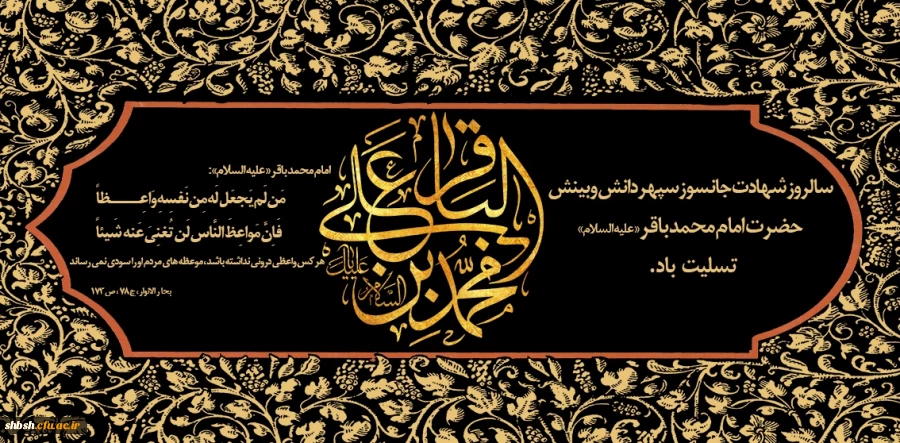 سالروز شهادت جانسوز سپهر دانش و بینش
حضرت امام محمد باقر «علیه السلام»
تسلیت باد.
محمد بن علی الباقر
علیه السلام
امام محمد باقر «علیه السلام»:
مَن لَم یَجعَل لَه مِن نَفسِهِ واعِظاً
فَاِنَّ مَواعِظَ النَّاس لَن تُغنیَ عَنه شَیئاً
هر کس واعظی درونی نداشته باشد، موعظه های مردم او را سودی نمی رساند
بحار الانوار، ج ۷۸، ص ۱۷۳
shbsh.cfu.ac.ir